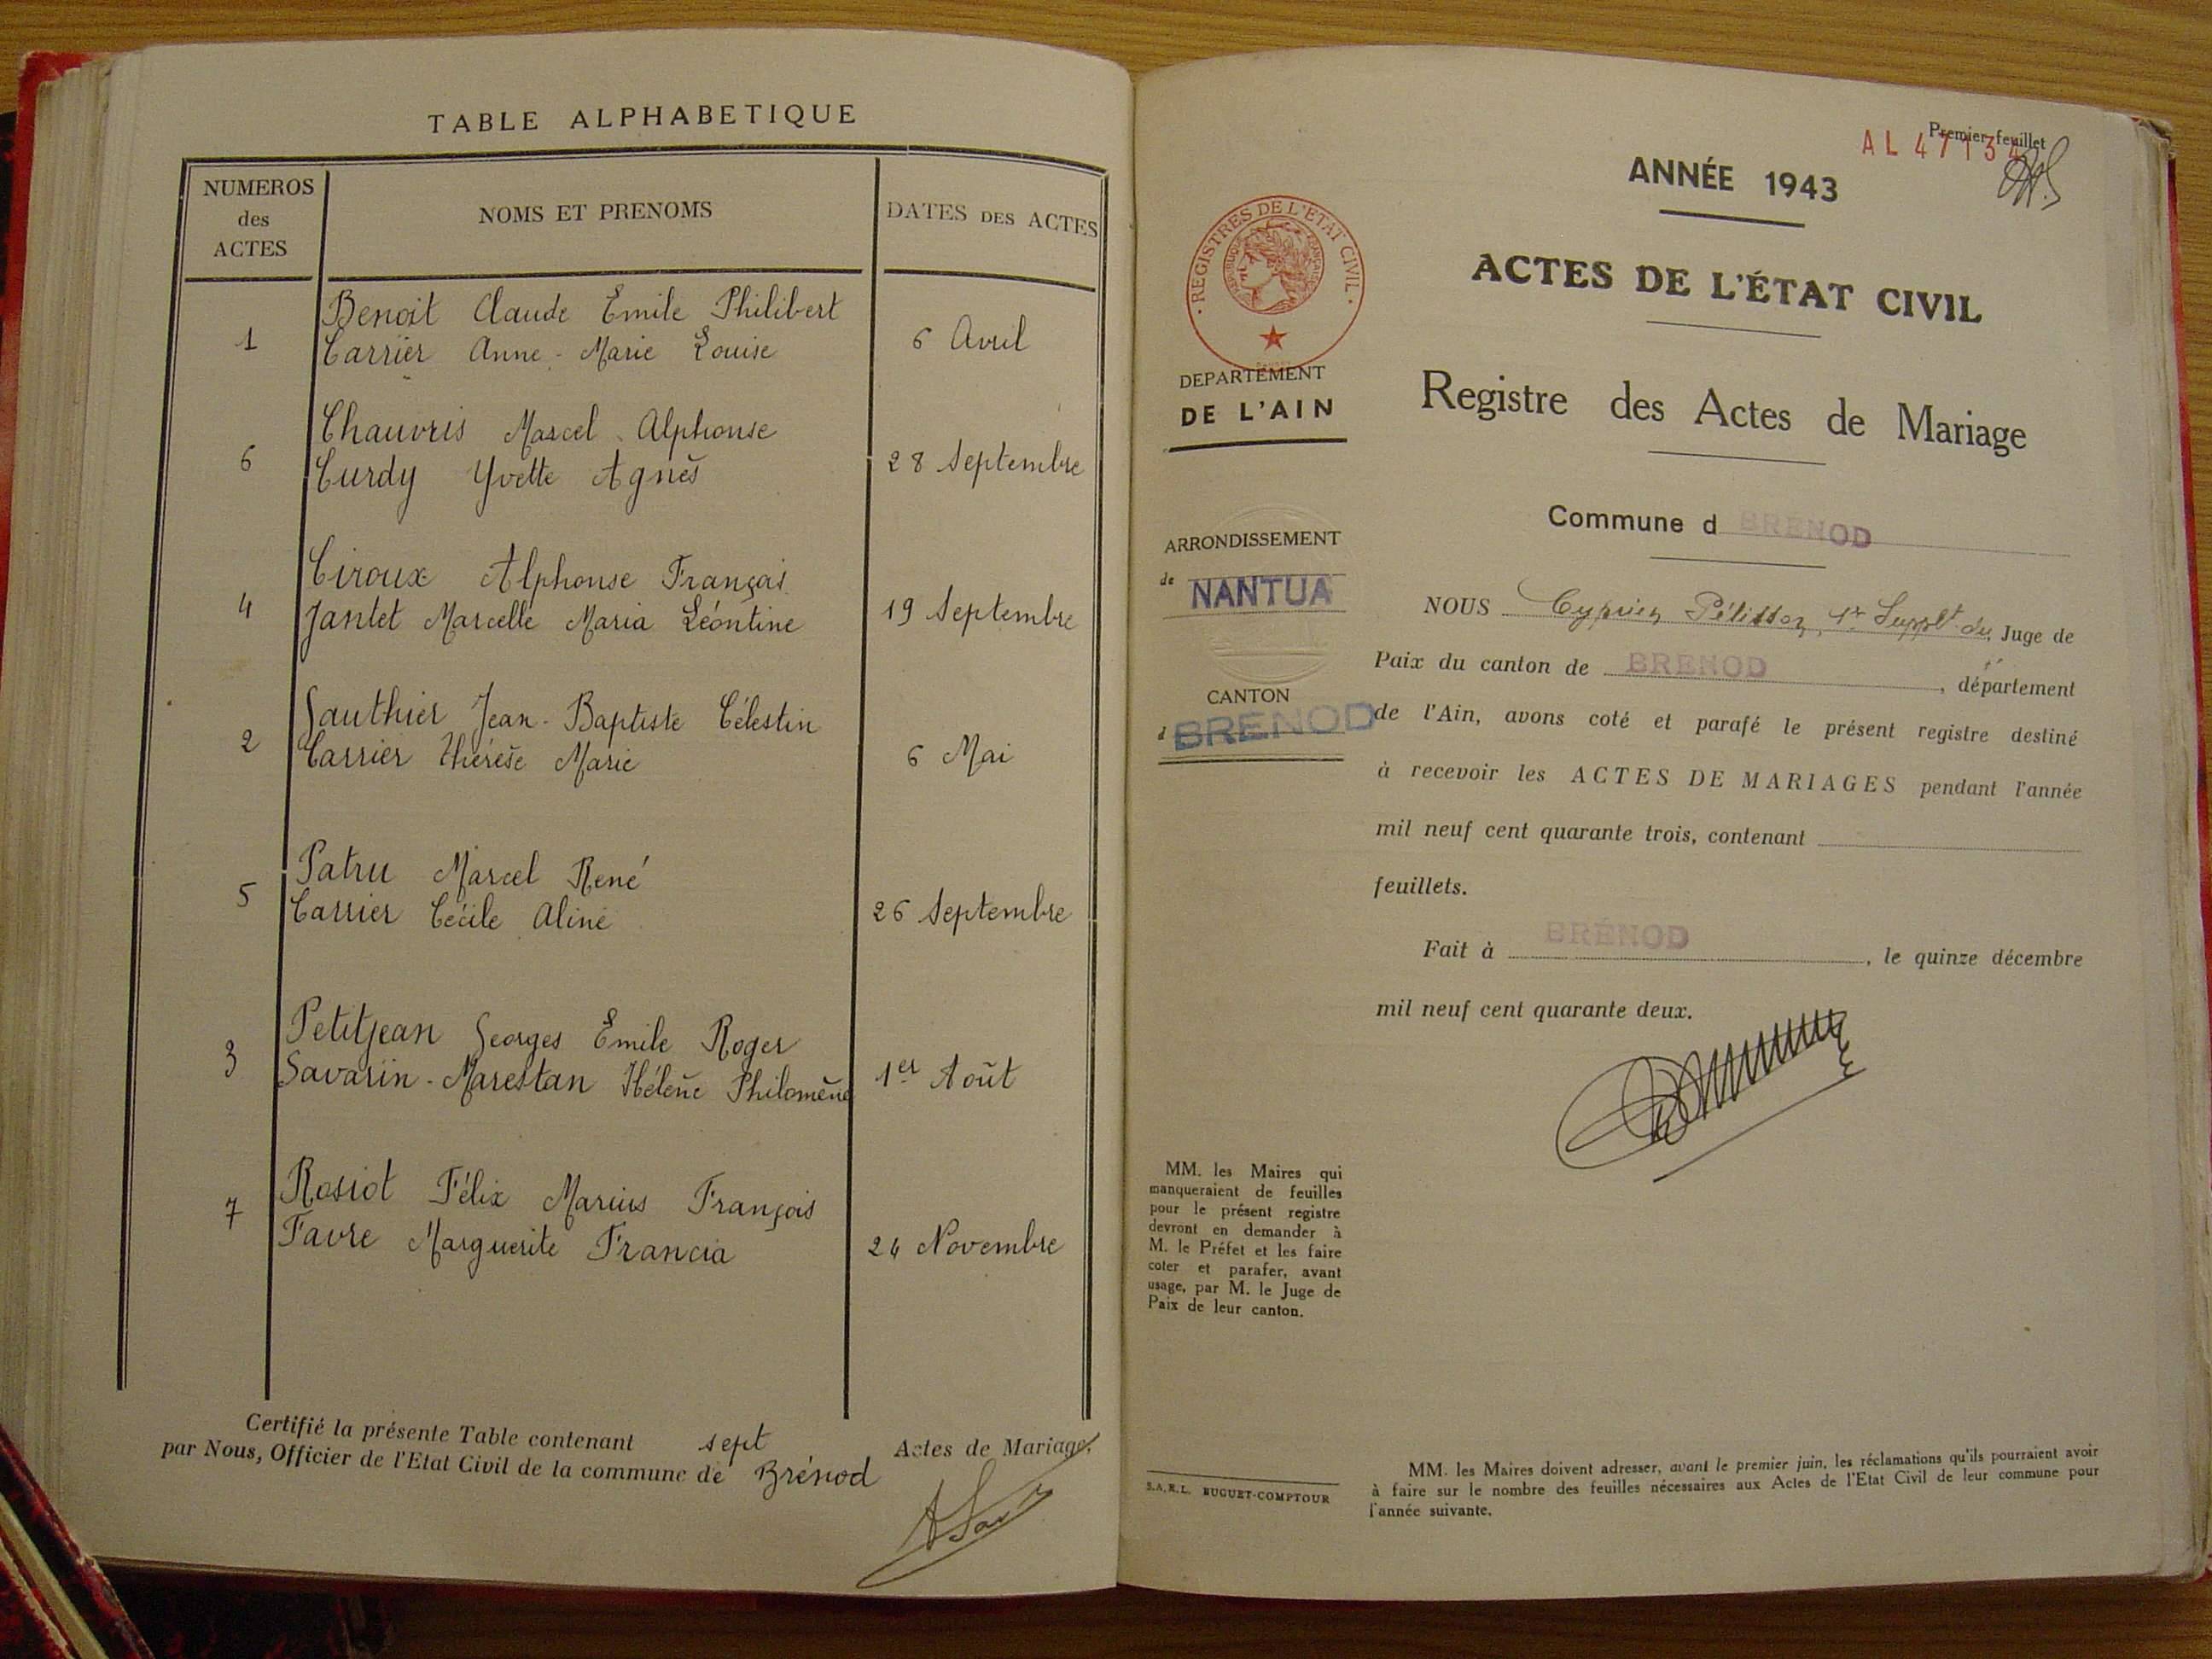 TABLE ALPHABETIQUE
NUMEROS des ACTES
NOMS ET PRENOMS
DATES DES ACTES
Benoit Claude Emile Philibert
1 Carrier Anne-Marie Louise 6 Avril
Chauvris Marcel Alphonse
6 Curdy Yvette Agnès 28 Septembre
Ciroux Alphonse François
4 Jantet Marcelle Maria Léontine 19 Septembre
Gauthier Jean-Baptiste Célestin
2 Carrier Thérèse Marie 6 Mai
Patru Marcel René
5 Carrier Cécile Aline 26 Septembre
Petitjean Georges Emile Roger
3 Savarin-Marestan Hélène Philomène 1er Août
Rosiot Félix Marius François
7 Favre Marguerite Francia 24 Novembre
Certifié la présente Table contenant sept Actes de Mariage,
par Nous, Officier de l'Etat Civil de la commune de Brénod
Premier feuillet
ANNÉE 1943
ACTES DE L'ÉTAT CIVIL
Registre des Actes de Mariage
Commune d BRÉNOD
NOUS Cyprien Pélisson, 1er Supplt du Juge de
Paix du canton de BRENOD, département
de l'Ain, avons coté et parafé le présent registre destiné
à recevoir les ACTES DE MARIAGES pendant l'année
mil neuf cent quarante trois, contenant
feuillets.
Fait à BRÉNOD, le quinze décembre
mil neuf cent quarante deux.
· REGISTRES DE L'ÉTAT CIVIL ·
DEPARTEMENT
DE L'AIN
ARRONDISSEMENT
de NANTUA
CANTON
d BRENOD
MM. les Maires qui
manqueraient de feuilles
pour le présent registre
devront en demander à
M. le Préfet et les faire
coter et parafer, avant
usage, par M. le Juge de
Paix de leur canton.
S.A.R.L. BUGUET-COMPTOUR
MM. les Maires doivent adresser, avant le premier juin, les réclamations qu'ils pourraient avoir
à faire sur le nombre des feuilles nécessaires aux Actes de l'Etat Civil de leur commune pour
l'année suivante.